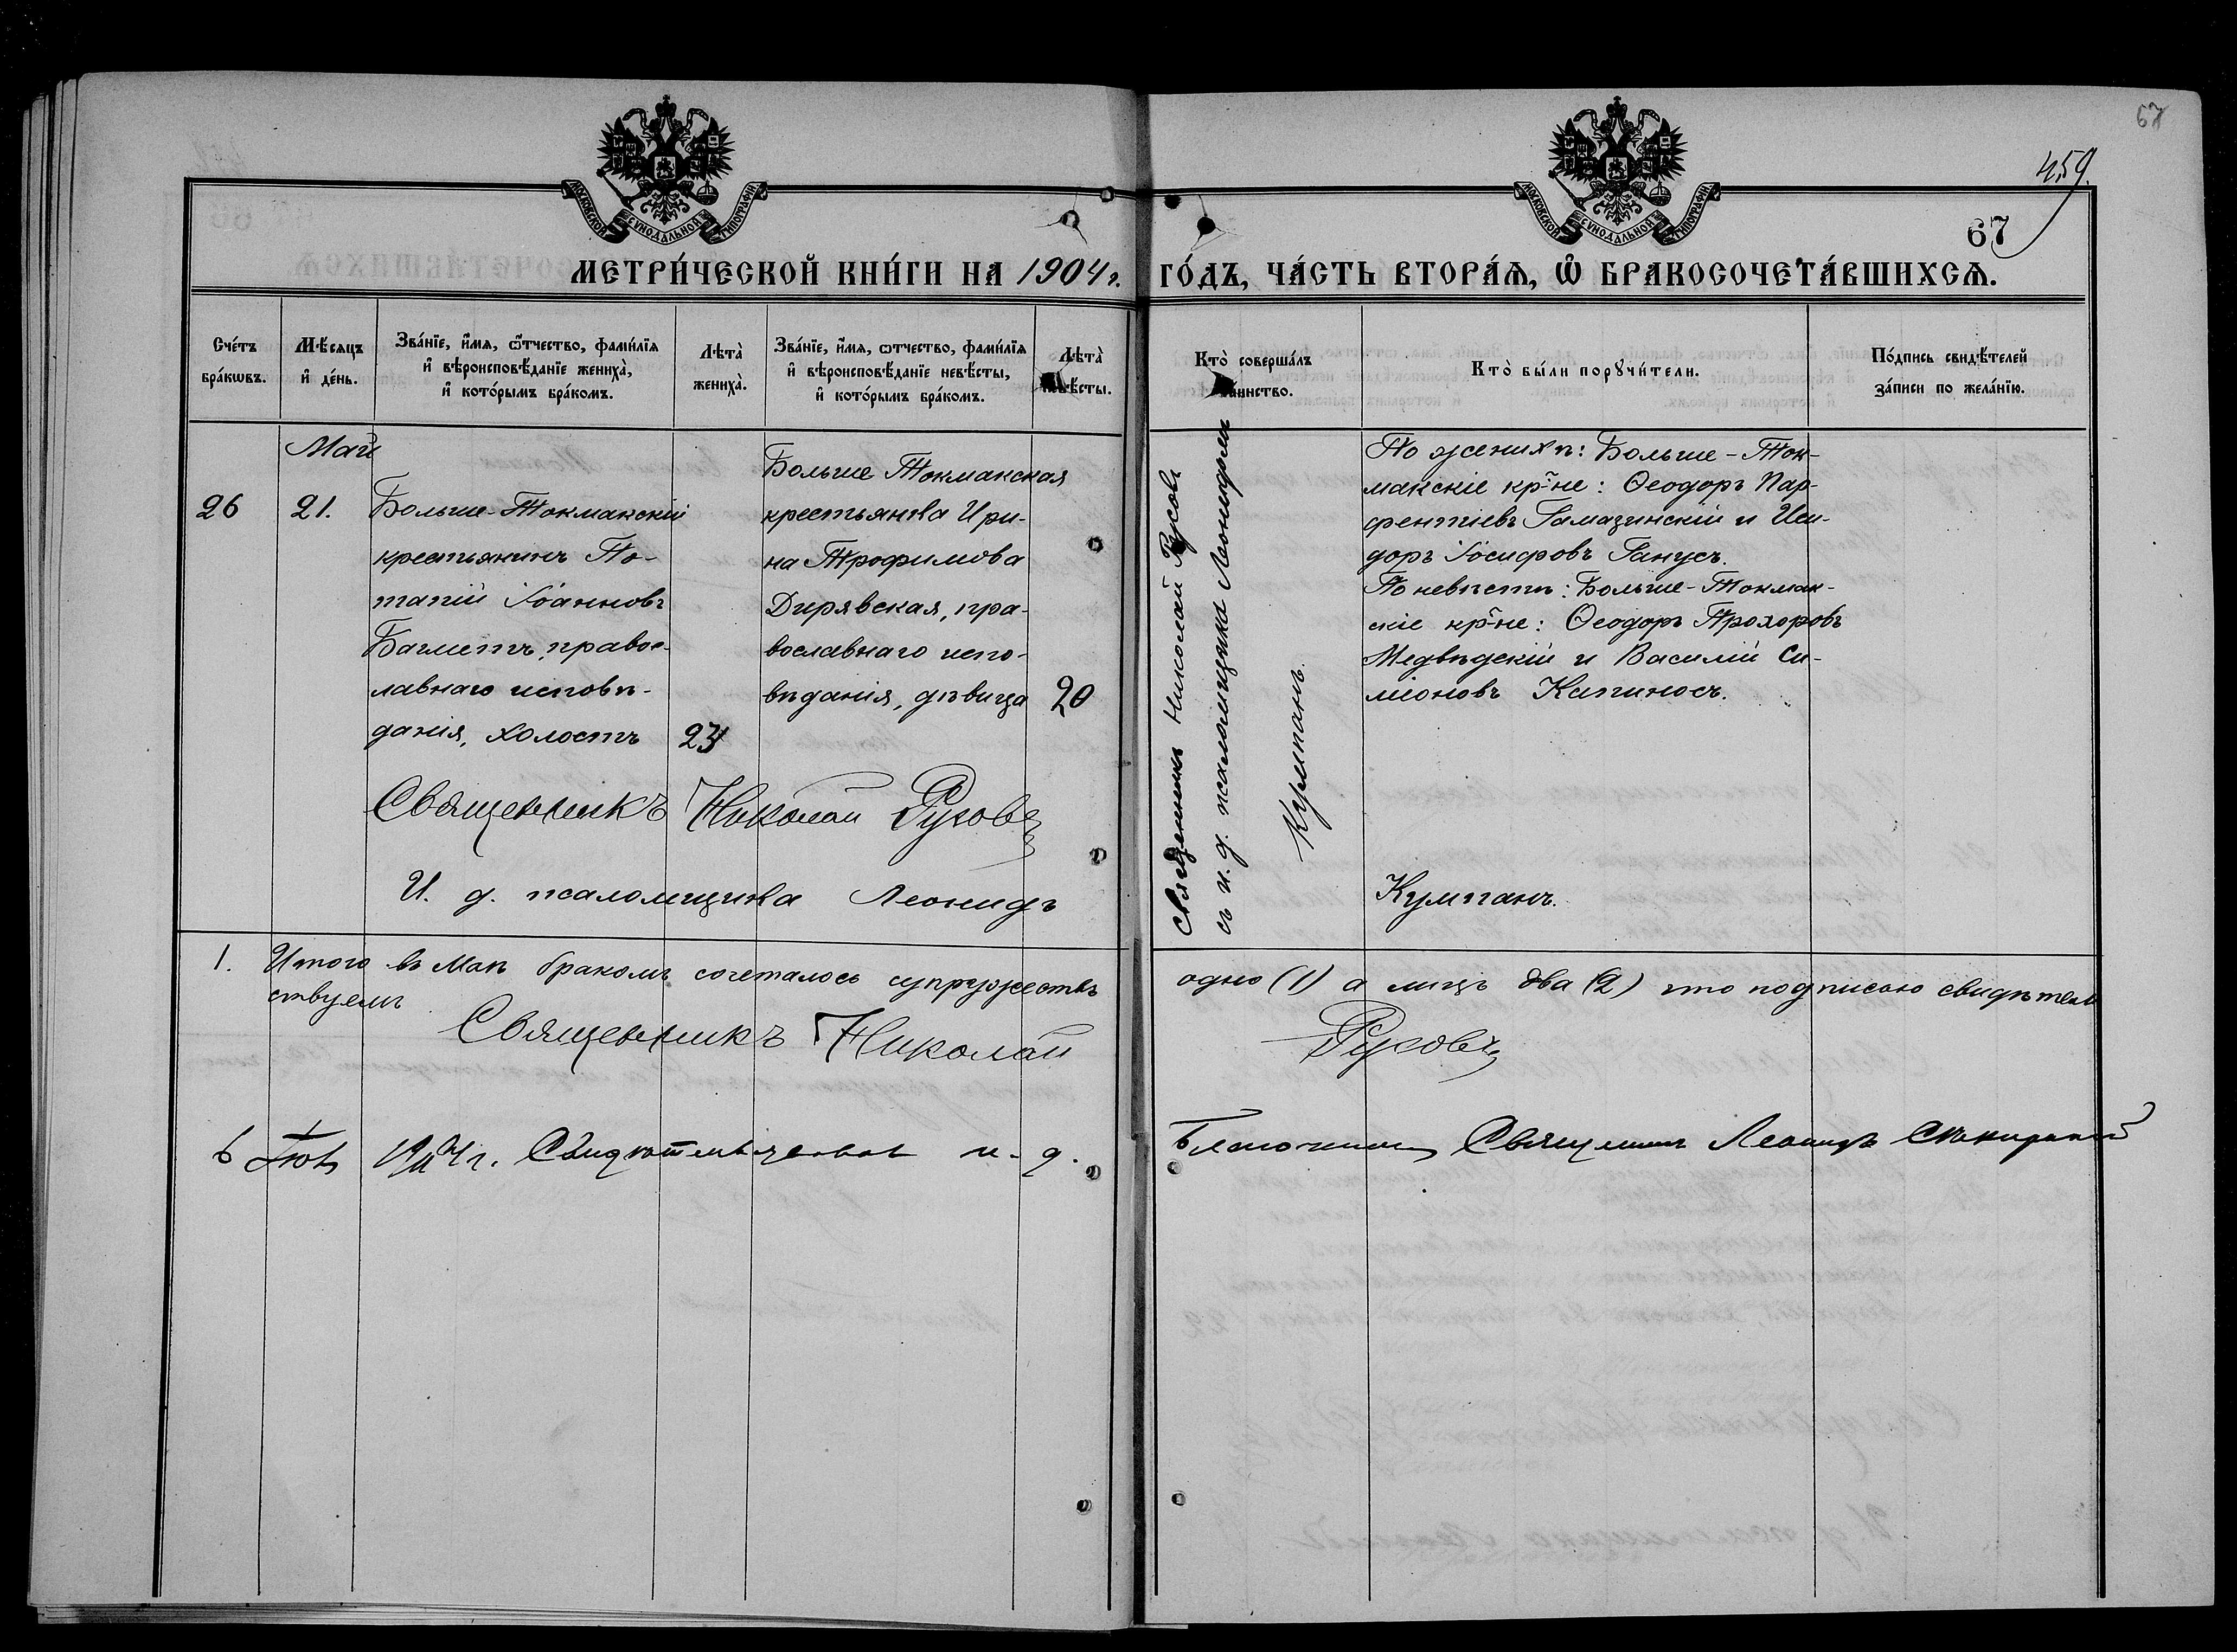 67
459.
67
МОСКОВСКОЙ СУНОДАЛЬНОЙ ТИПОГРАФІИ
МОСКОВСКОЙ СУНОДАЛЬНОЙ ТИПОГРАФІИ
МЕТРИ́ЧЕСКОЙ КНИ́ГИ НА 1904 г. ГО́ДЪ, ЧА́СТЬ ВТОРА́Ѧ, Ѽ БРАКОСОЧЕТА́ВШИХСѦ.
Сче́тъ бра́кѡвъ.
Мѣ́сѧцъ и҆ де́нь.
Зва́нїе, и҆́мѧ, ѻ҆́тчество, фами́лїѧ и҆ вѣроисповѣ́данїе жениха̀, и҆ кото́рымъ бра́комъ.
Лѣта̀ жениха̀.
Зва́нїе, и҆́мѧ, ѻ҆тчество, фами́лїѧ и҆ вѣроисповѣ́данїе невѣ́сты, и҆ кото́рымъ бра́комъ.
Лѣта̀ невѣ́сты.
Кто̀ соверша́лъ таинство.
Кто̀ бы́ли порꙋчи́тели.
По́дпись свидѣ́телей за́писи по жела́нїю.
Май
26
21.
Больше-Токмакскій
крестьянинъ По-
тапій Іоанновъ
Багметъ, правос-
лавнаго исповѣ-
данія, холостъ
23
Больше Токмакская
крестьянка Ири-
на Трофимова
Дирявская, пра-
вославнаго испо-
вѣданія, дѣвица
20
Священникъ Николай Русовъ
съ и. д. псаломщика Леонидомъ
Кумпанъ.
По женихѣ: Больше-Ток-
макскіе кр-не: Ѳеодоръ Пар-
фентіевъ Гамазинскій и Иси-
доръ Іосифовъ Ганусъ.
По невѣстѣ: Больше-Токмак-
скіе кр-не: Ѳеодоръ Прохоровъ
Медвѣдскій и Василій Си-
міоновъ Капиносъ.
Священникъ Николай Русовъ
И. д. псаломщика Леонидъ Кумпанъ.
1. Итого въ Маѣ бракомъ сочеталось супружествъ одно (1) а лицъ два (2) что подписью свидѣтель
ствуемъ
Священникъ Николай Русовъ
1904 г. и. д. Благочиннаго Священникъ Леонидъ